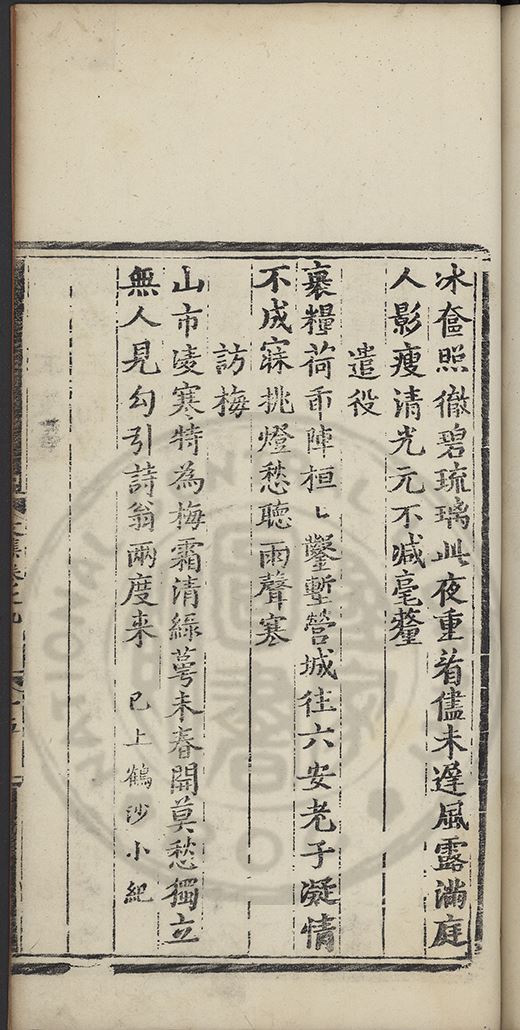 冰奩照徹碧琉璃此夜重看儘未遲風露滿庭
人影瘦清光元不減毫釐
遣役
裹糧荷帀陣桓〻鑿塹營城往六安老子凝情
不成寐挑燈愁聽雨聲寒
訪梅
山市凌寒特為梅霜清綠萼未春開莫愁獨立
無人見勾引詩翁兩度来 已上鶴沙小紀